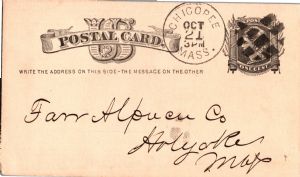 POSTAL CARD.
CHICOPEE
OCT
21
3PM
MASS.
ONE CENT
WRITE THE ADDRESS ON THIS SIDE - THE MESSAGE ON THE OTHER
Farr Alpaca Co
Holyoke
Mass